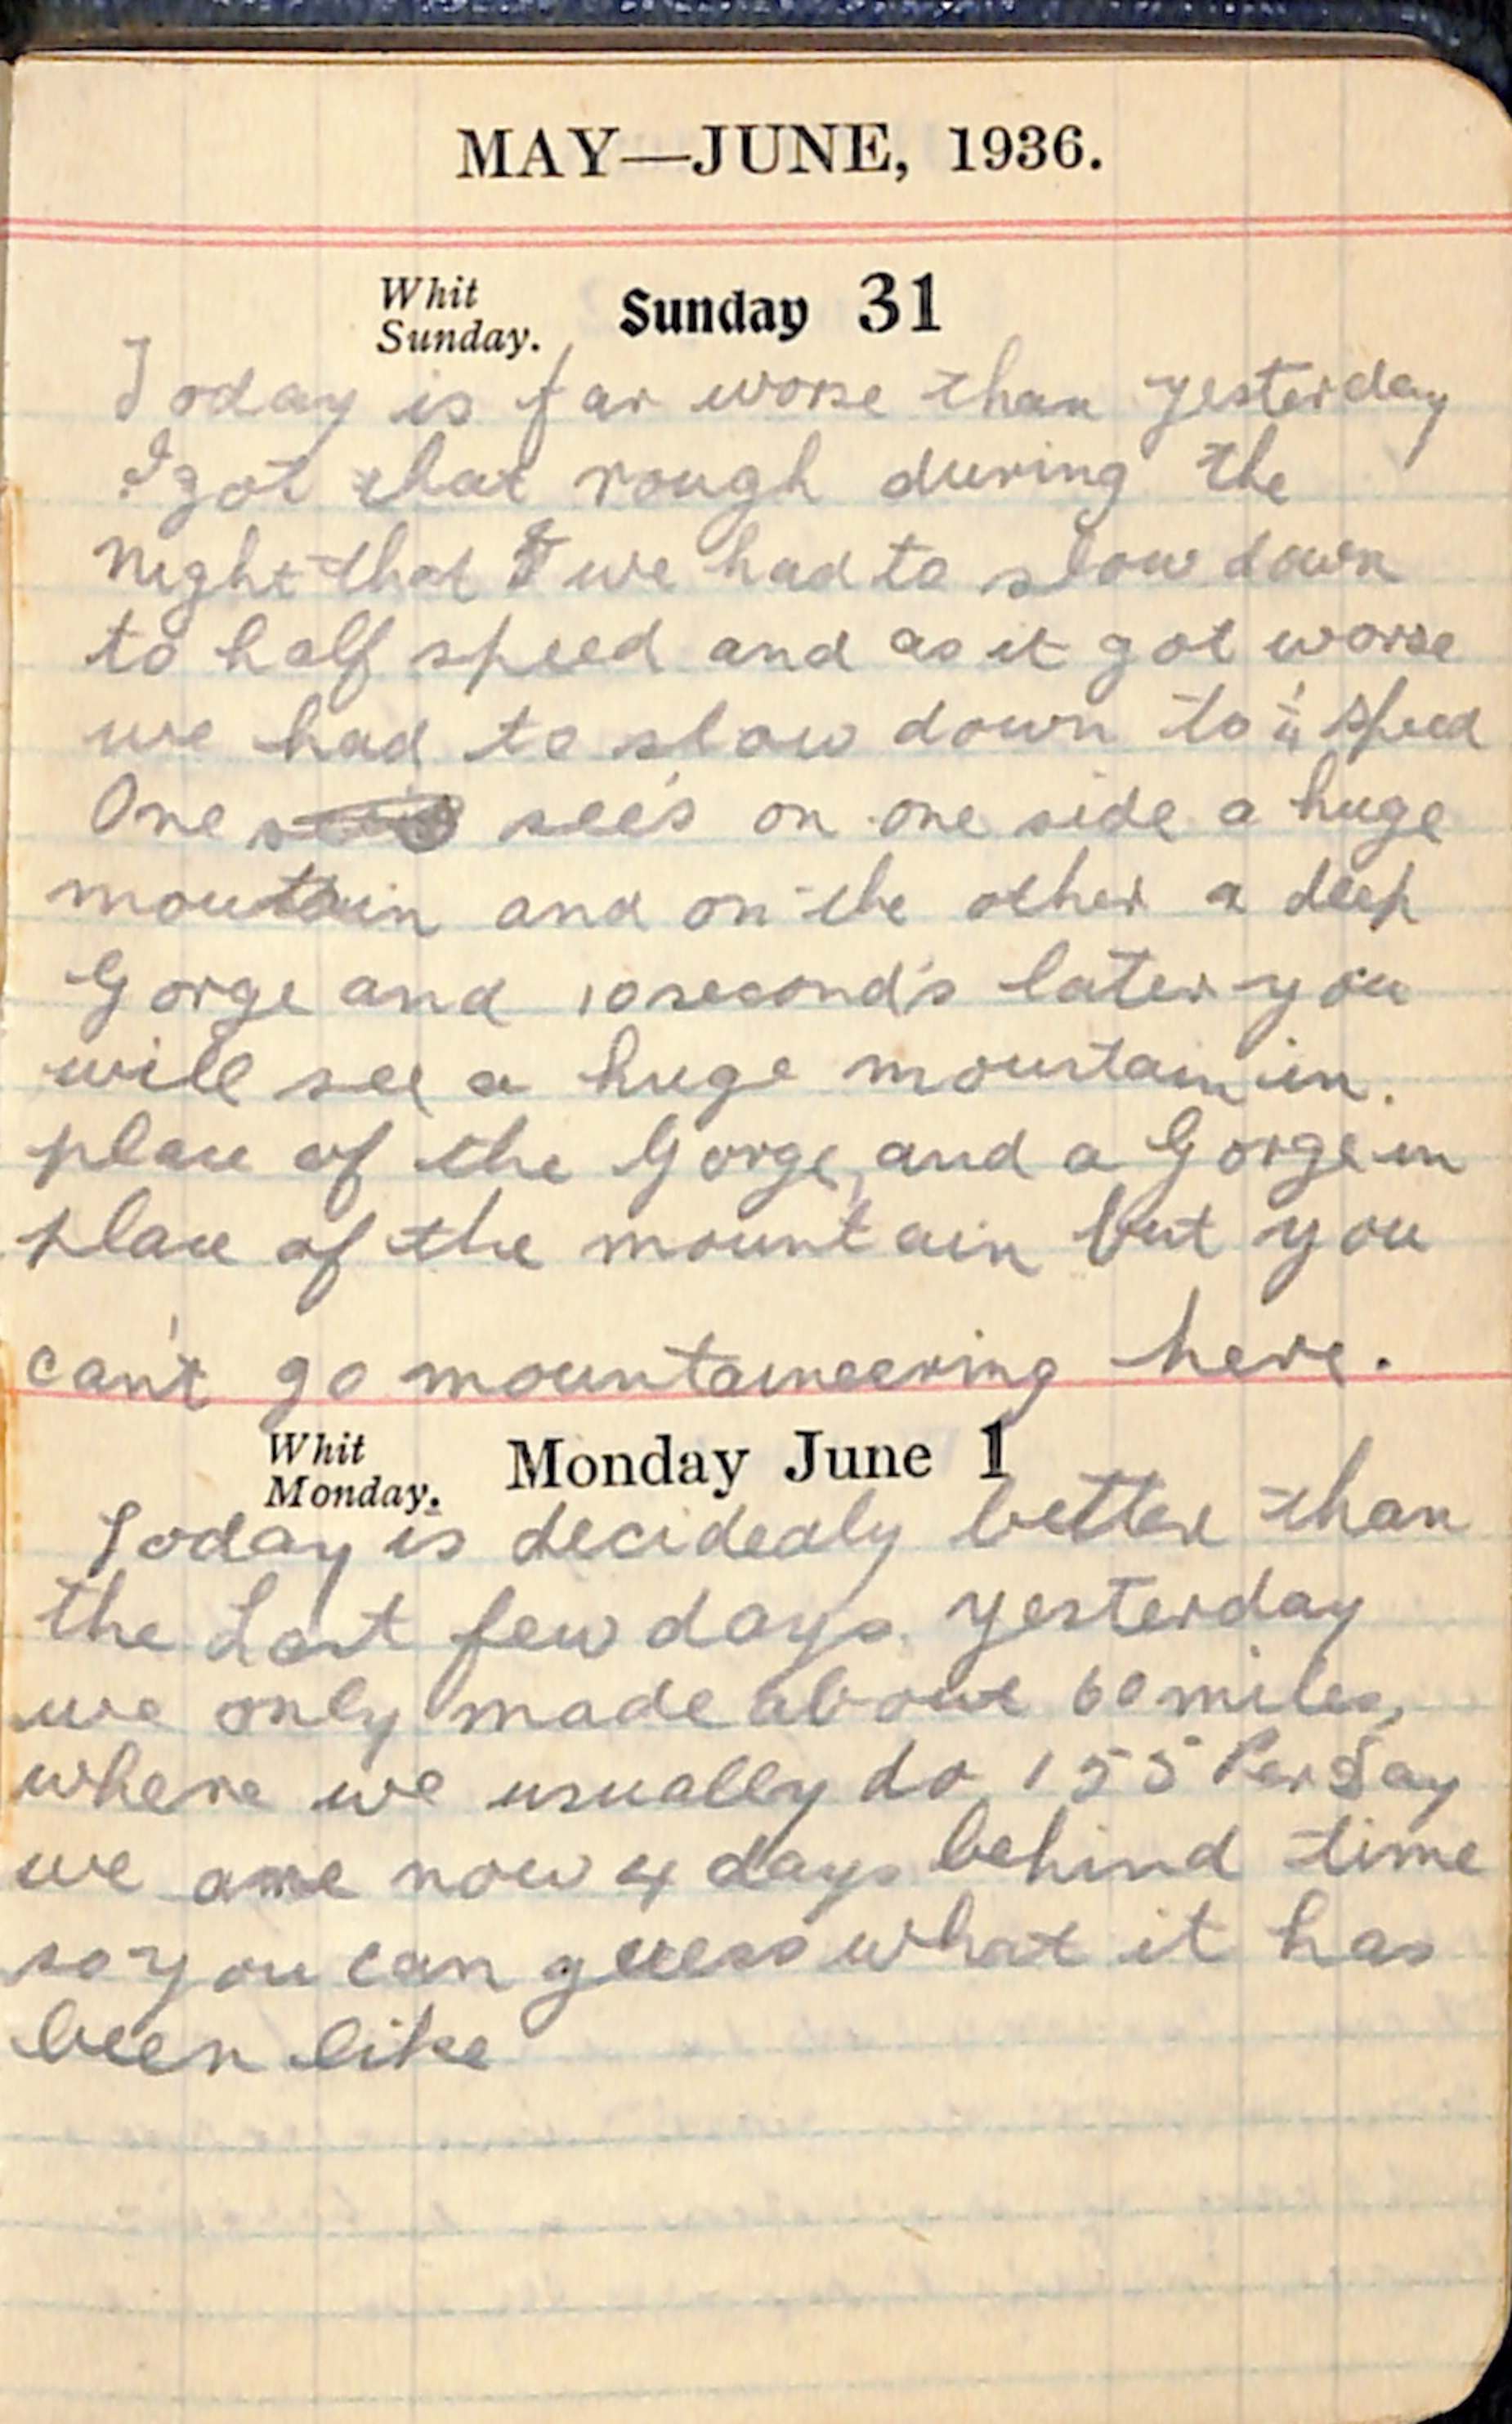 MAY—JUNE, 1936.
Whit
Sunday. Sunday 31
Today is far worse than yesterday
I got that rough during the
night that we had to slow down
to half speed and as it got worse
we had to slow down to ¼ speed
One see's on one side a huge
moutain and on the other a deep
Gorge and 10 second's later you
will see a huge mountain in.
place of the Gorge, and a Gorge in
place of the mountain but you
can't go mountaineering here.
Whit
Monday. Monday June 1
Today is decidedly better than
the Last few days. yesterday
we only made about 60 miles,
where we usually do 155 Per Day
we are now 4 days behind time
so you can guess what it has
been like